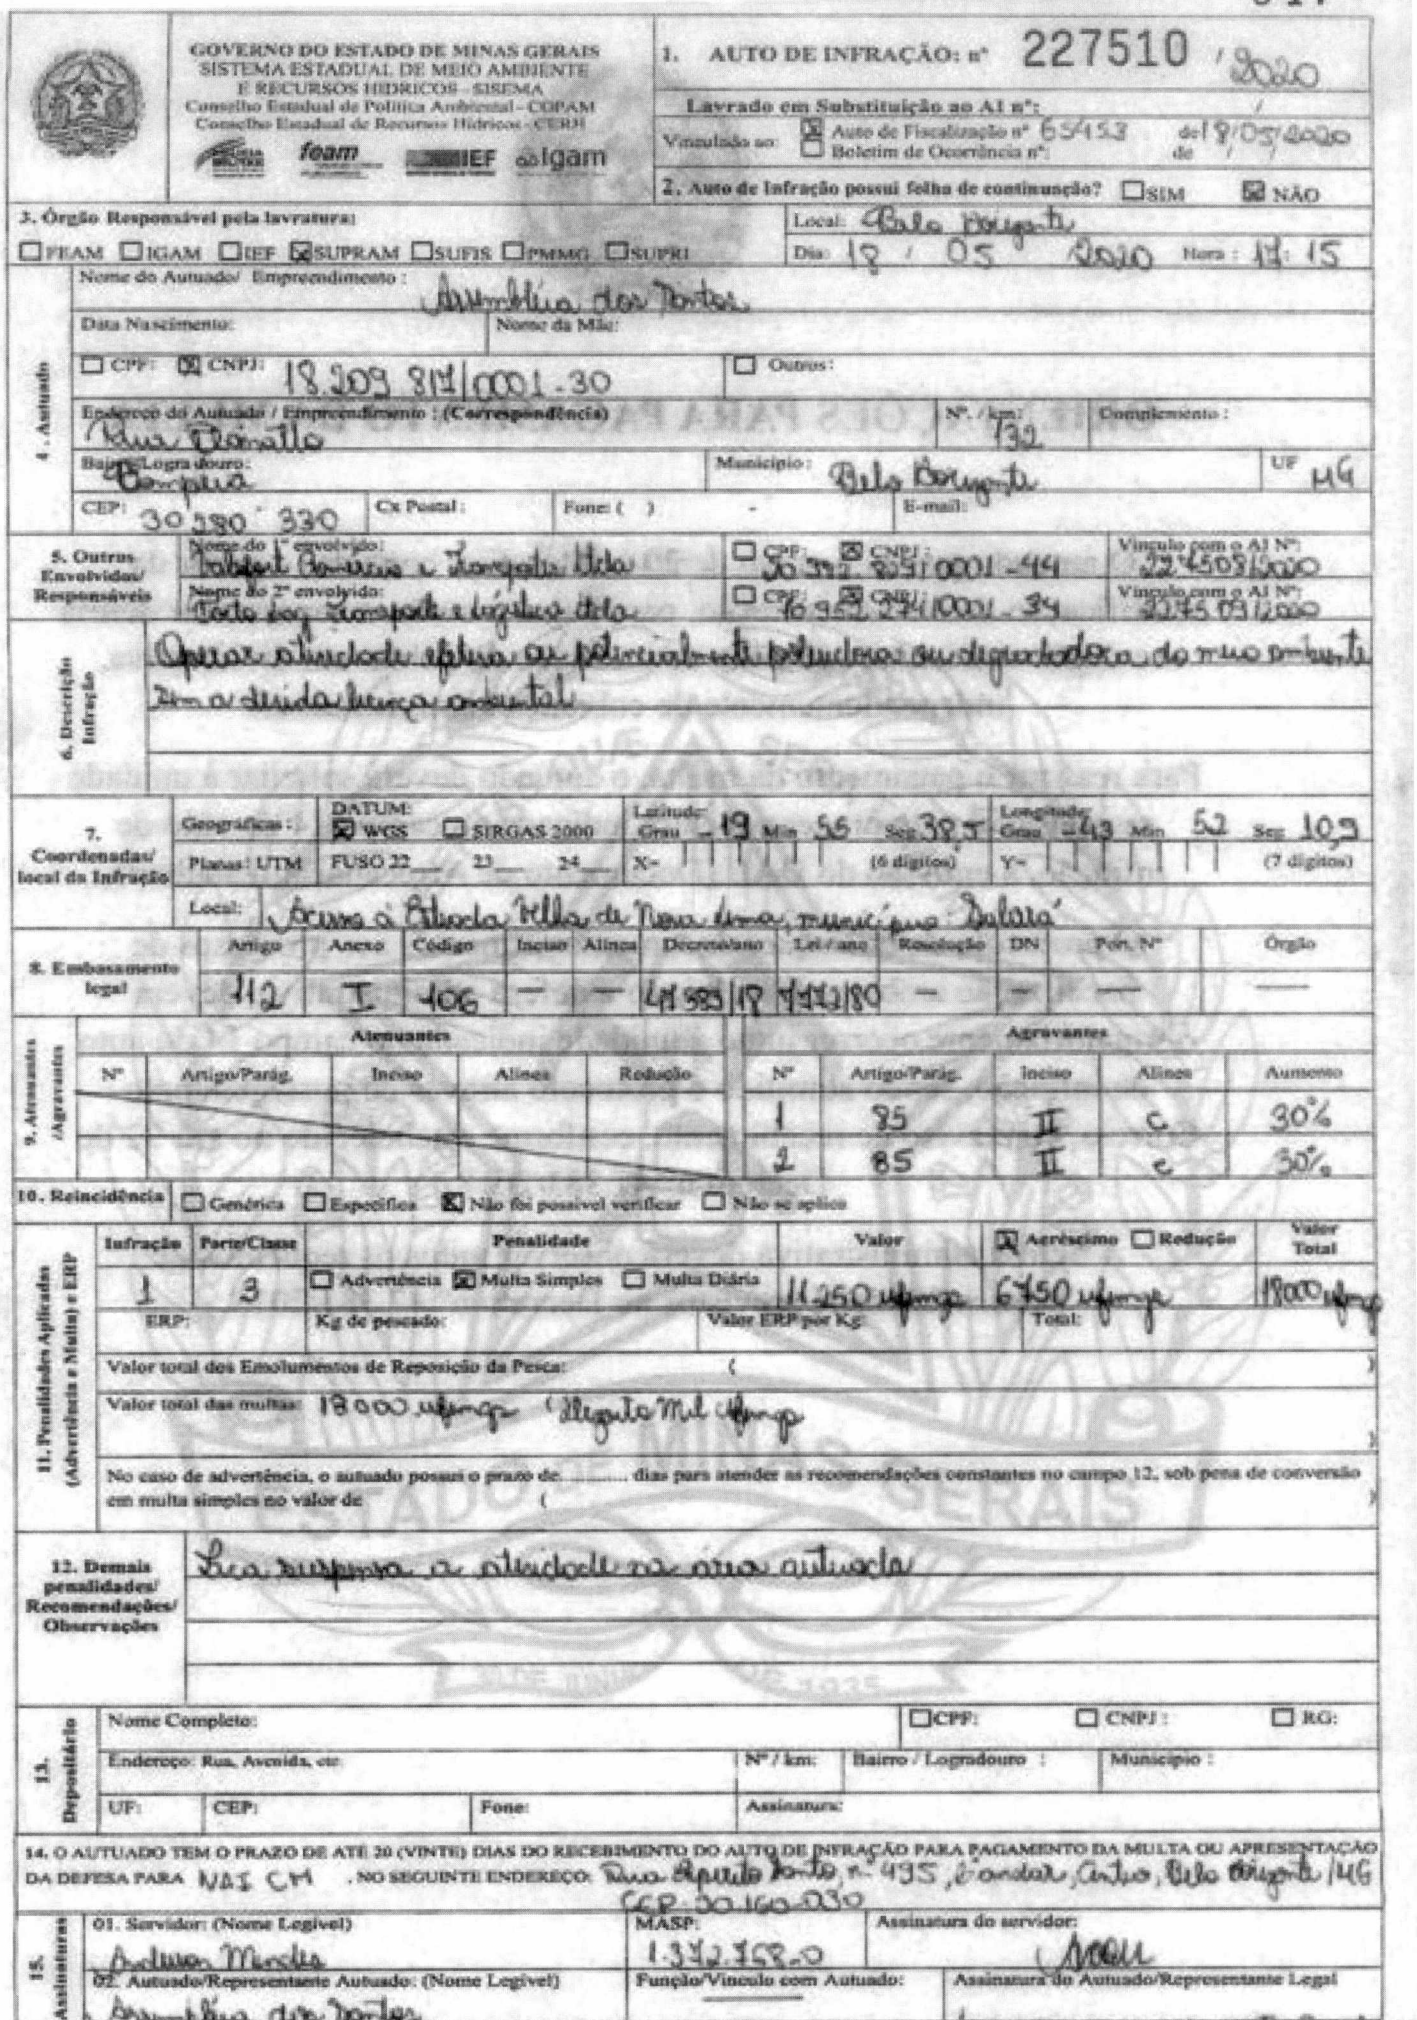 GOVERNO DO ESTADO DE MINAS GERAIS
SISTEMA ESTADUAL DE MEIO AMBIENTE
E RECURSOS HIDRICOS - SISEMA
Conselho Estadual de Política Ambiental - COPAM
Conselho Estadual de Recursos Hídricos - CERH
feam IEF igam
1. AUTO DE INFRAÇÃO: nº 227510 / 2020
Lavrado em Substituição ao AI nº: /
Vinculado ao: ☒ Auto de Fiscalização nº 65453 de 18/05/2020
☐ Boletim de Ocorrência nº: de / /
2. Auto de Infração possui folha de continuação? ☐ SIM ☒ NÃO
3. Órgão Responsável pela lavratura:
☐ FEAM ☐ IGAM ☐ IEF ☒ SUPRAM ☐ SUFIS ☐ PMMG ☐ SUPRI
Local: Belo Horizonte
Dia: 18 / 05 / 2020 Hora: 17:15
4. Autuado
Nome do Autuado/ Empreendimento:
Assembléia dos Santos
Data Nascimento: Nome da Mãe:
☐ CPF: ☒ CNPJ: 18.209 817/0001-30 ☐ Outros:
Endereço do Autuado / Empreendimento: (Correspondência) Nº. / km: Complemento:
Rua 132
Bairro/Logradouro: Município: UF
Pompéia Belo Horizonte MG
CEP: 30.280-330 Cx Postal: Fone: ( ) - E-mail:
5. Outros Envolvidos/ Responsáveis
Nome do 1º envolvido: ☐ CPF: ☒ CNPJ: Vínculo com o AI Nº:
Comércio e Transportes Ltda /0001-44 227508/2020
Nome do 2º envolvido: ☐ CPF: ☒ CNPJ: Vínculo com o AI Nº:
Porto Log Transporte e Logística Ltda 10 952 274/0001-34 227509/2020
6. Descrição Infração
Operar atividade efetiva ou potencialmente poluidora ou degradadora do meio ambiente
sem a devida licença ambiental
7. Coordenadas/ local da Infração
Geográficas: DATUM: ☒ WGS ☐ SIRGAS 2000 Latitude: Grau -19 Min 55 Seg 38,5 Longitude: Grau -43 Min 52 Seg 10,9
Planas: UTM FUSO 22__ 23__ 24__ X= (6 dígitos) Y= (7 dígitos)
Local: Acesso à Estrada Velha de Nova Lima, município Sabará
8. Embasamento legal
Artigo Anexo Código Inciso Alínea Decreto/ano Lei / ano Resolução DN Port. Nº Órgão
112 I 106 — — 47383/18 7772/80 — — — —
9. Atenuantes /Agravantes
Atenuantes Agravantes
Nº Artigo/Parág. Inciso Alínea Redução Nº Artigo/Parág. Inciso Alínea Aumento
1 85 II c 30%
2 85 II e 30%
10. Reincidência ☐ Genérica ☐ Específica ☒ Não foi possível verificar ☐ Não se aplica
11. Penalidades Aplicadas (Advertência e Multa) e ERP
Infração Parte/Classe Penalidade Valor ☒ Acréscimo ☐ Redução Valor Total
1 3 ☐ Advertência ☒ Multa Simples ☐ Multa Diária 11.250 ufemgs 6750 ufemgs 18000 ufemgs
ERP: Kg de pescado: Valor ERP por Kg: Total:
Valor total dos Emolumentos de Reposição da Pesca: ( )
Valor total das multas: 18000 ufemgs (Dezoito Mil ufemgs )
No caso de advertência, o autuado possui o prazo de............ dias para atender as recomendações constantes no campo 12, sob pena de conversão
em multa simples no valor de ( )
12. Demais penalidades/ Recomendações/ Observações
Fica suspensa a atividade na área autuada
13. Depositário
Nome Completo: ☐ CPF: ☐ CNPJ: ☐ RG:
Endereço: Rua, Avenida, etc. Nº / km: Bairro / Logradouro : Município :
UF: CEP: Fone: Assinatura:
14. O AUTUADO TEM O PRAZO DE ATÉ 20 (VINTE) DIAS DO RECEBIMENTO DO AUTO DE INFRAÇÃO PARA PAGAMENTO DA MULTA OU APRESENTAÇÃO
DA DEFESA PARA NAI CM , NO SEGUINTE ENDEREÇO: Rua Espírito Santo, nº 495, andar, Centro, Belo Horizonte / MG
CEP 30.160-030
15. Assinaturas
01. Servidor: (Nome Legível) MASP: Assinatura do servidor:
Anderson Mendes 1.372.768-0
02. Autuado/Representante Autuado: (Nome Legível) Função/Vínculo com Autuado: Assinatura do Autuado/Representante Legal
Assembléia dos Santos